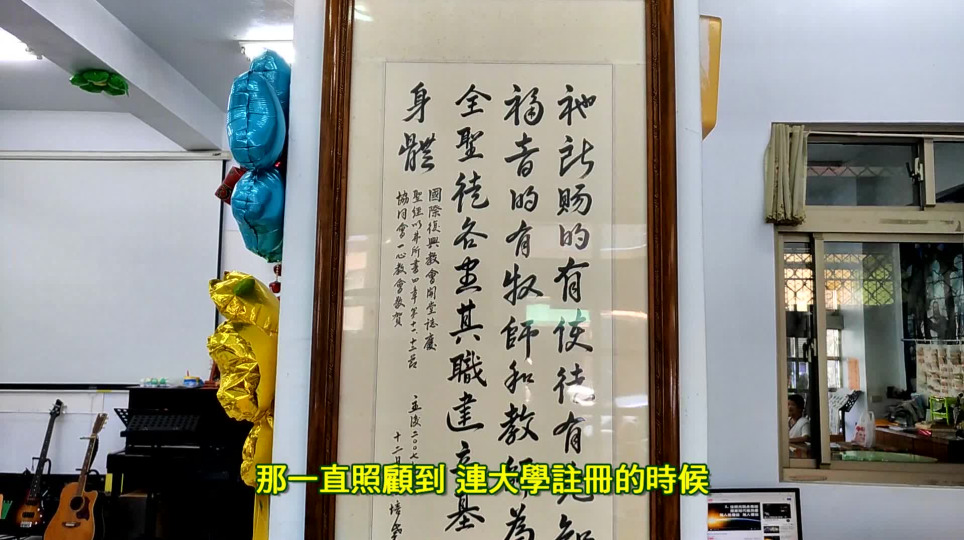 祂所賜的有使徒有先知
福音的有牧師和教師為
全聖徒各盡其職建立基
身體
國際復興教會開堂誌慶
聖經以弗所書四章第十一、十二節
協同會一心教會敬賀
主後二〇〇七
十二月
那一直照顧到 連大學註冊的時候